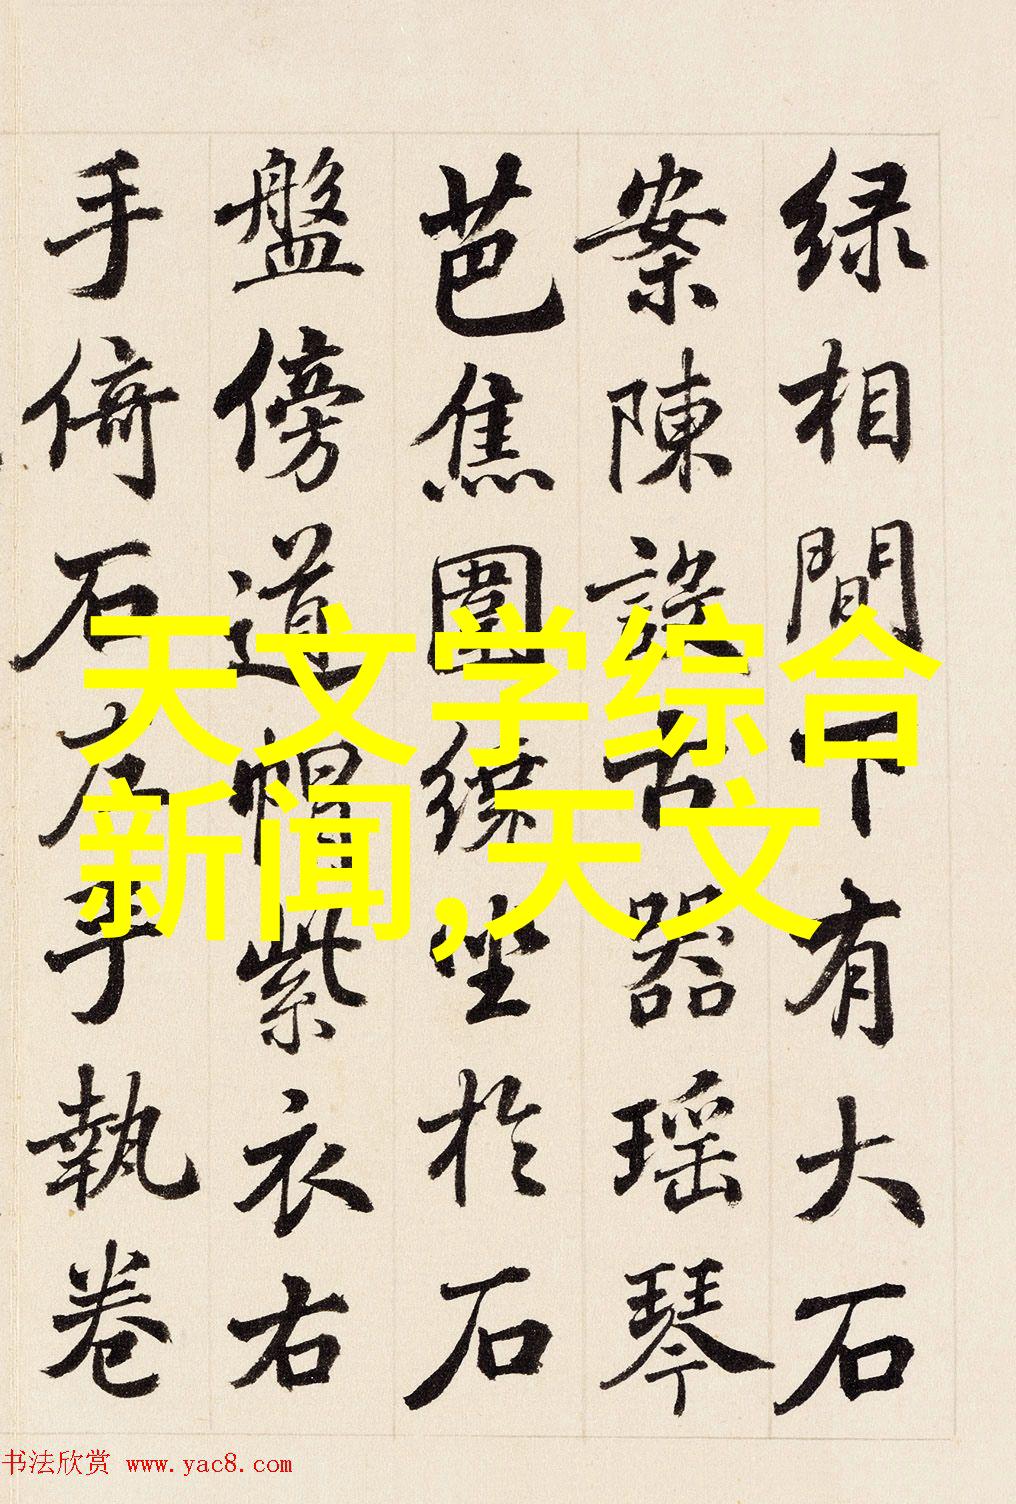 绿相間下有大石
案陳設古器瑶琴
芭焦圍繞坐於石
盤傍道帽紫衣右
手倚石左手執卷
天文学综合
新闻,天文
书法欣赏 www.yac8.com